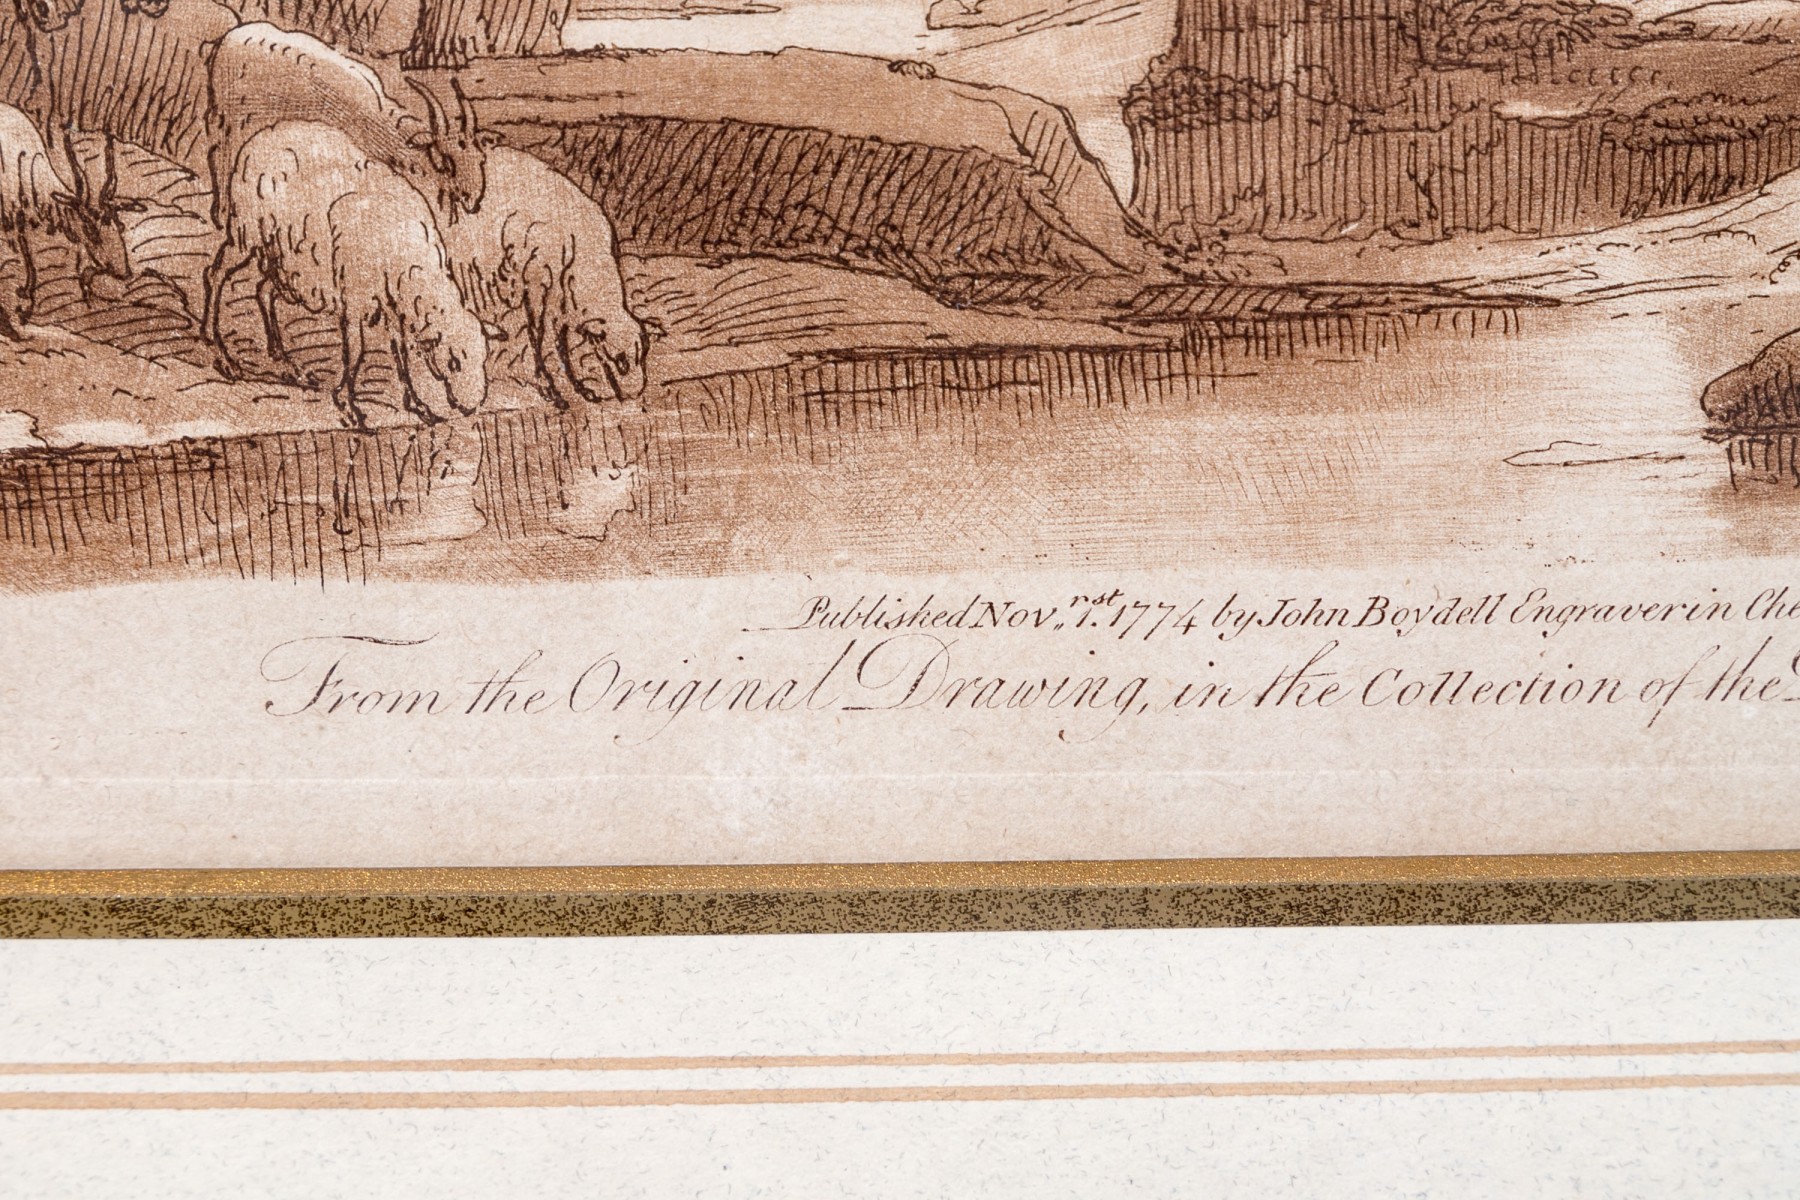 Published Nov.rst 1. 1774 by John Boydell Engraver in Che
From the Original Drawing, in the Collection of the